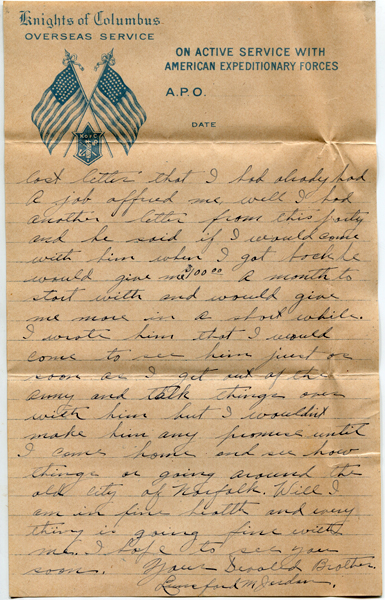 Knights of Columbus.
OVERSEAS SERVICE
ON ACTIVE SERVICE WITH
AMERICAN EXPEDITIONARY FORCES
A.P.O.
DATE
K of C
last letter that I had already had
a job offred me, well I had
another letter from this party
and he said if I would come
with him when I got back he
would give me $100.00 a month to
start with and would give
me more in a short while.
I wrote him that I would
come to see him just as
soon as I get out of the
army and talk things over
with him but I wouldn't
make him any promise until
I come home and see how
things or going around the
old city of Norfolk. Will I
am in fine health and every
thing is going fine with
me. I hope to see you
soon. Your Brother